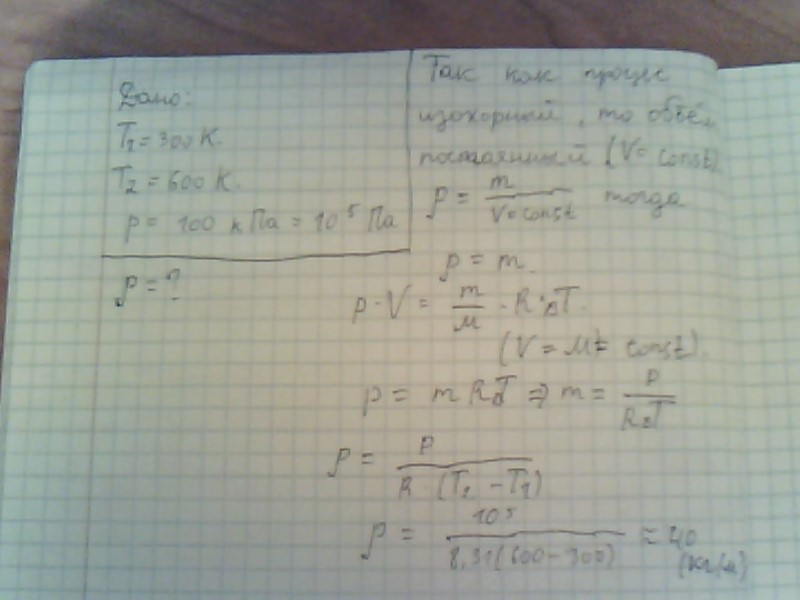 Дано:
T₁ = 300 К.
T₂ = 600 К.
p = 100 кПа = 10⁵ Па
ρ = ?
Так как процес
изохорный, то объём
постоянный (V = const)
ρ = m / V = const тогда
ρ = m.
p · V = m / M · R · ΔT.
(V = M = const).
p = m R ΔT ⇒ m = p / RΔT
ρ = p / R (T₂ - T₁)
ρ = 10⁵ / 8,31(600 - 300) ≈ 40